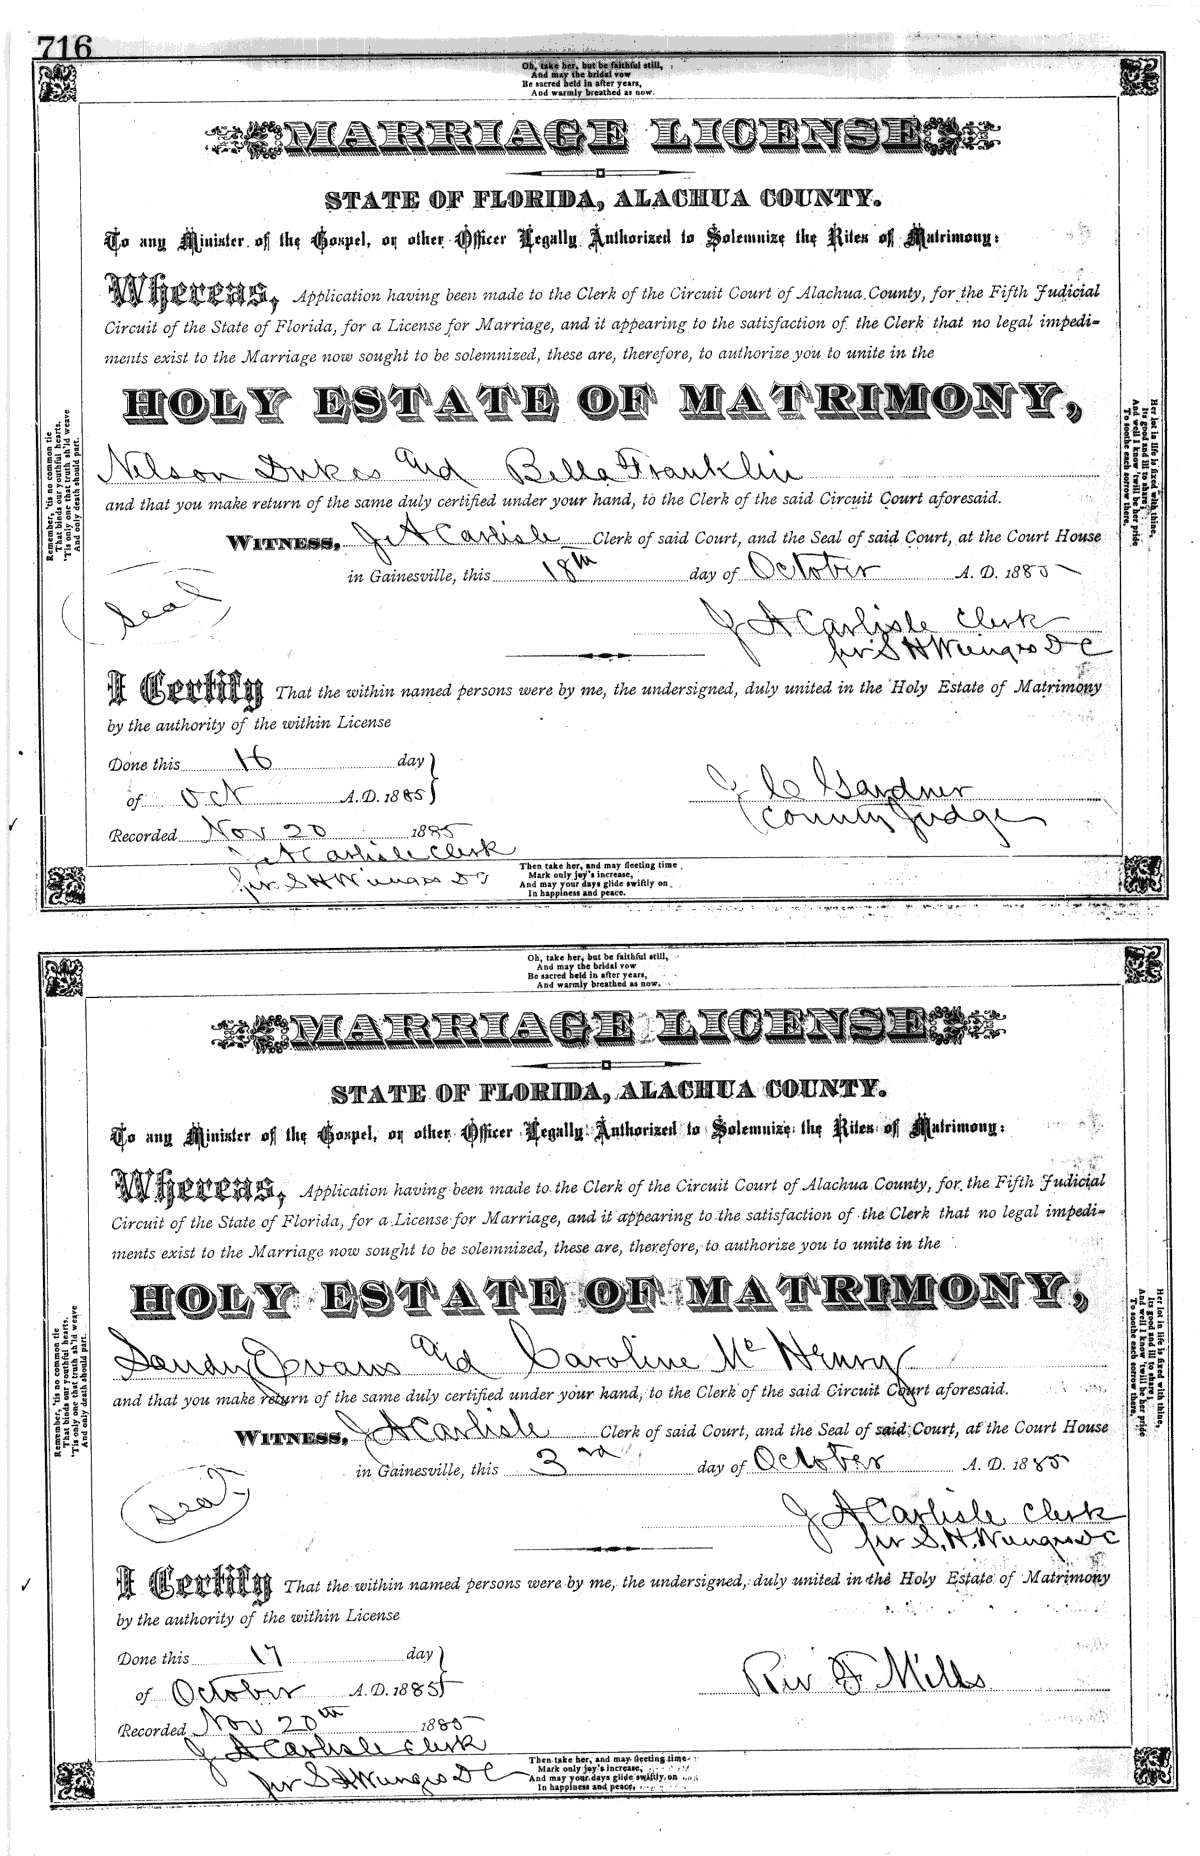 716
Oh, take her, but be faithful still,
And may the bridal vow
Be sacred held in after years,
And warmly breathed as now.
MARRIAGE LICENSE
STATE OF FLORIDA, ALACHUA COUNTY.
To any Minister of the Gospel, or other Officer Legally Authorized to Solemnize the Rites of Matrimony:
Whereas, Application having been made to the Clerk of the Circuit Court of Alachua County, for the Fifth Judicial
Circuit of the State of Florida, for a License for Marriage, and it appearing to the satisfaction of the Clerk that no legal impedi-
ments exist to the Marriage now sought to be solemnized, these are, therefore, to authorize you to unite in the
HOLY ESTATE OF MATRIMONY,
Nelson Dukes and Bella Franklin
and that you make return of the same duly certified under your hand, to the Clerk of the said Circuit Court aforesaid.
WITNESS, J A Carlisle Clerk of said Court, and the Seal of said Court, at the Court House
in Gainesville, this 18th day of October A. D. 1885
Seal
J A Carlisle Clerk
per S H Wienges D C
I Certify That the within named persons were by me, the undersigned, duly united in the Holy Estate of Matrimony
by the authority of the within License
Done this 16 day
of Oct A.D. 1885
J C Gardner
County Judge
Recorded Nov 20 1885
J A Carlisle Clerk
per S H Wienges D C
Remember, 'tis no common tie
That binds our youthful hearts.
'Tis only one that truth sh'ld weave
And only death should part.
Her lot in life is fixed with thine,
Its good and ill to share;
And well I know 'twill be her pride
To soothe each sorrow there.
Then take her, and may fleeting time
Mark only joy's increase,
And may your days glide swiftly on
In happiness and peace.
Oh, take her, but be faithful still,
And may the bridal vow
Be sacred held in after years,
And warmly breathed as now.
MARRIAGE LICENSE
STATE OF FLORIDA, ALACHUA COUNTY.
To any Minister of the Gospel, or other Officer Legally Authorized to Solemnize the Rites of Matrimony:
Whereas, Application having been made to the Clerk of the Circuit Court of Alachua County, for the Fifth Judicial
Circuit of the State of Florida, for a License for Marriage, and it appearing to the satisfaction of the Clerk that no legal impedi-
ments exist to the Marriage now sought to be solemnized, these are, therefore, to authorize you to unite in the
HOLY ESTATE OF MATRIMONY,
Sandy Evans and Caroline McHenry
and that you make return of the same duly certified under your hand, to the Clerk of the said Circuit Court aforesaid.
WITNESS, J A Carlisle Clerk of said Court, and the Seal of said Court, at the Court House
in Gainesville, this 3rd day of October A. D. 1885
Seal
J A Carlisle Clerk
per S. H. Wienges D C
I Certify That the within named persons were by me, the undersigned, duly united in the Holy Estate of Matrimony
by the authority of the within License
Done this 17 day
of October A.D. 1885
Rev F Mills
Recorded Nov 20th 1885
J A Carlisle Clerk
per S H Wienges D C
Remember, 'tis no common tie
That binds our youthful hearts.
'Tis only one that truth sh'ld weave
And only death should part.
Her lot in life is fixed with thine,
Its good and ill to share;
And well I know 'twill be her pride
To soothe each sorrow there.
Then take her, and may fleeting time
Mark only joy's increase,
And may your days glide swiftly on
In happiness and peace.